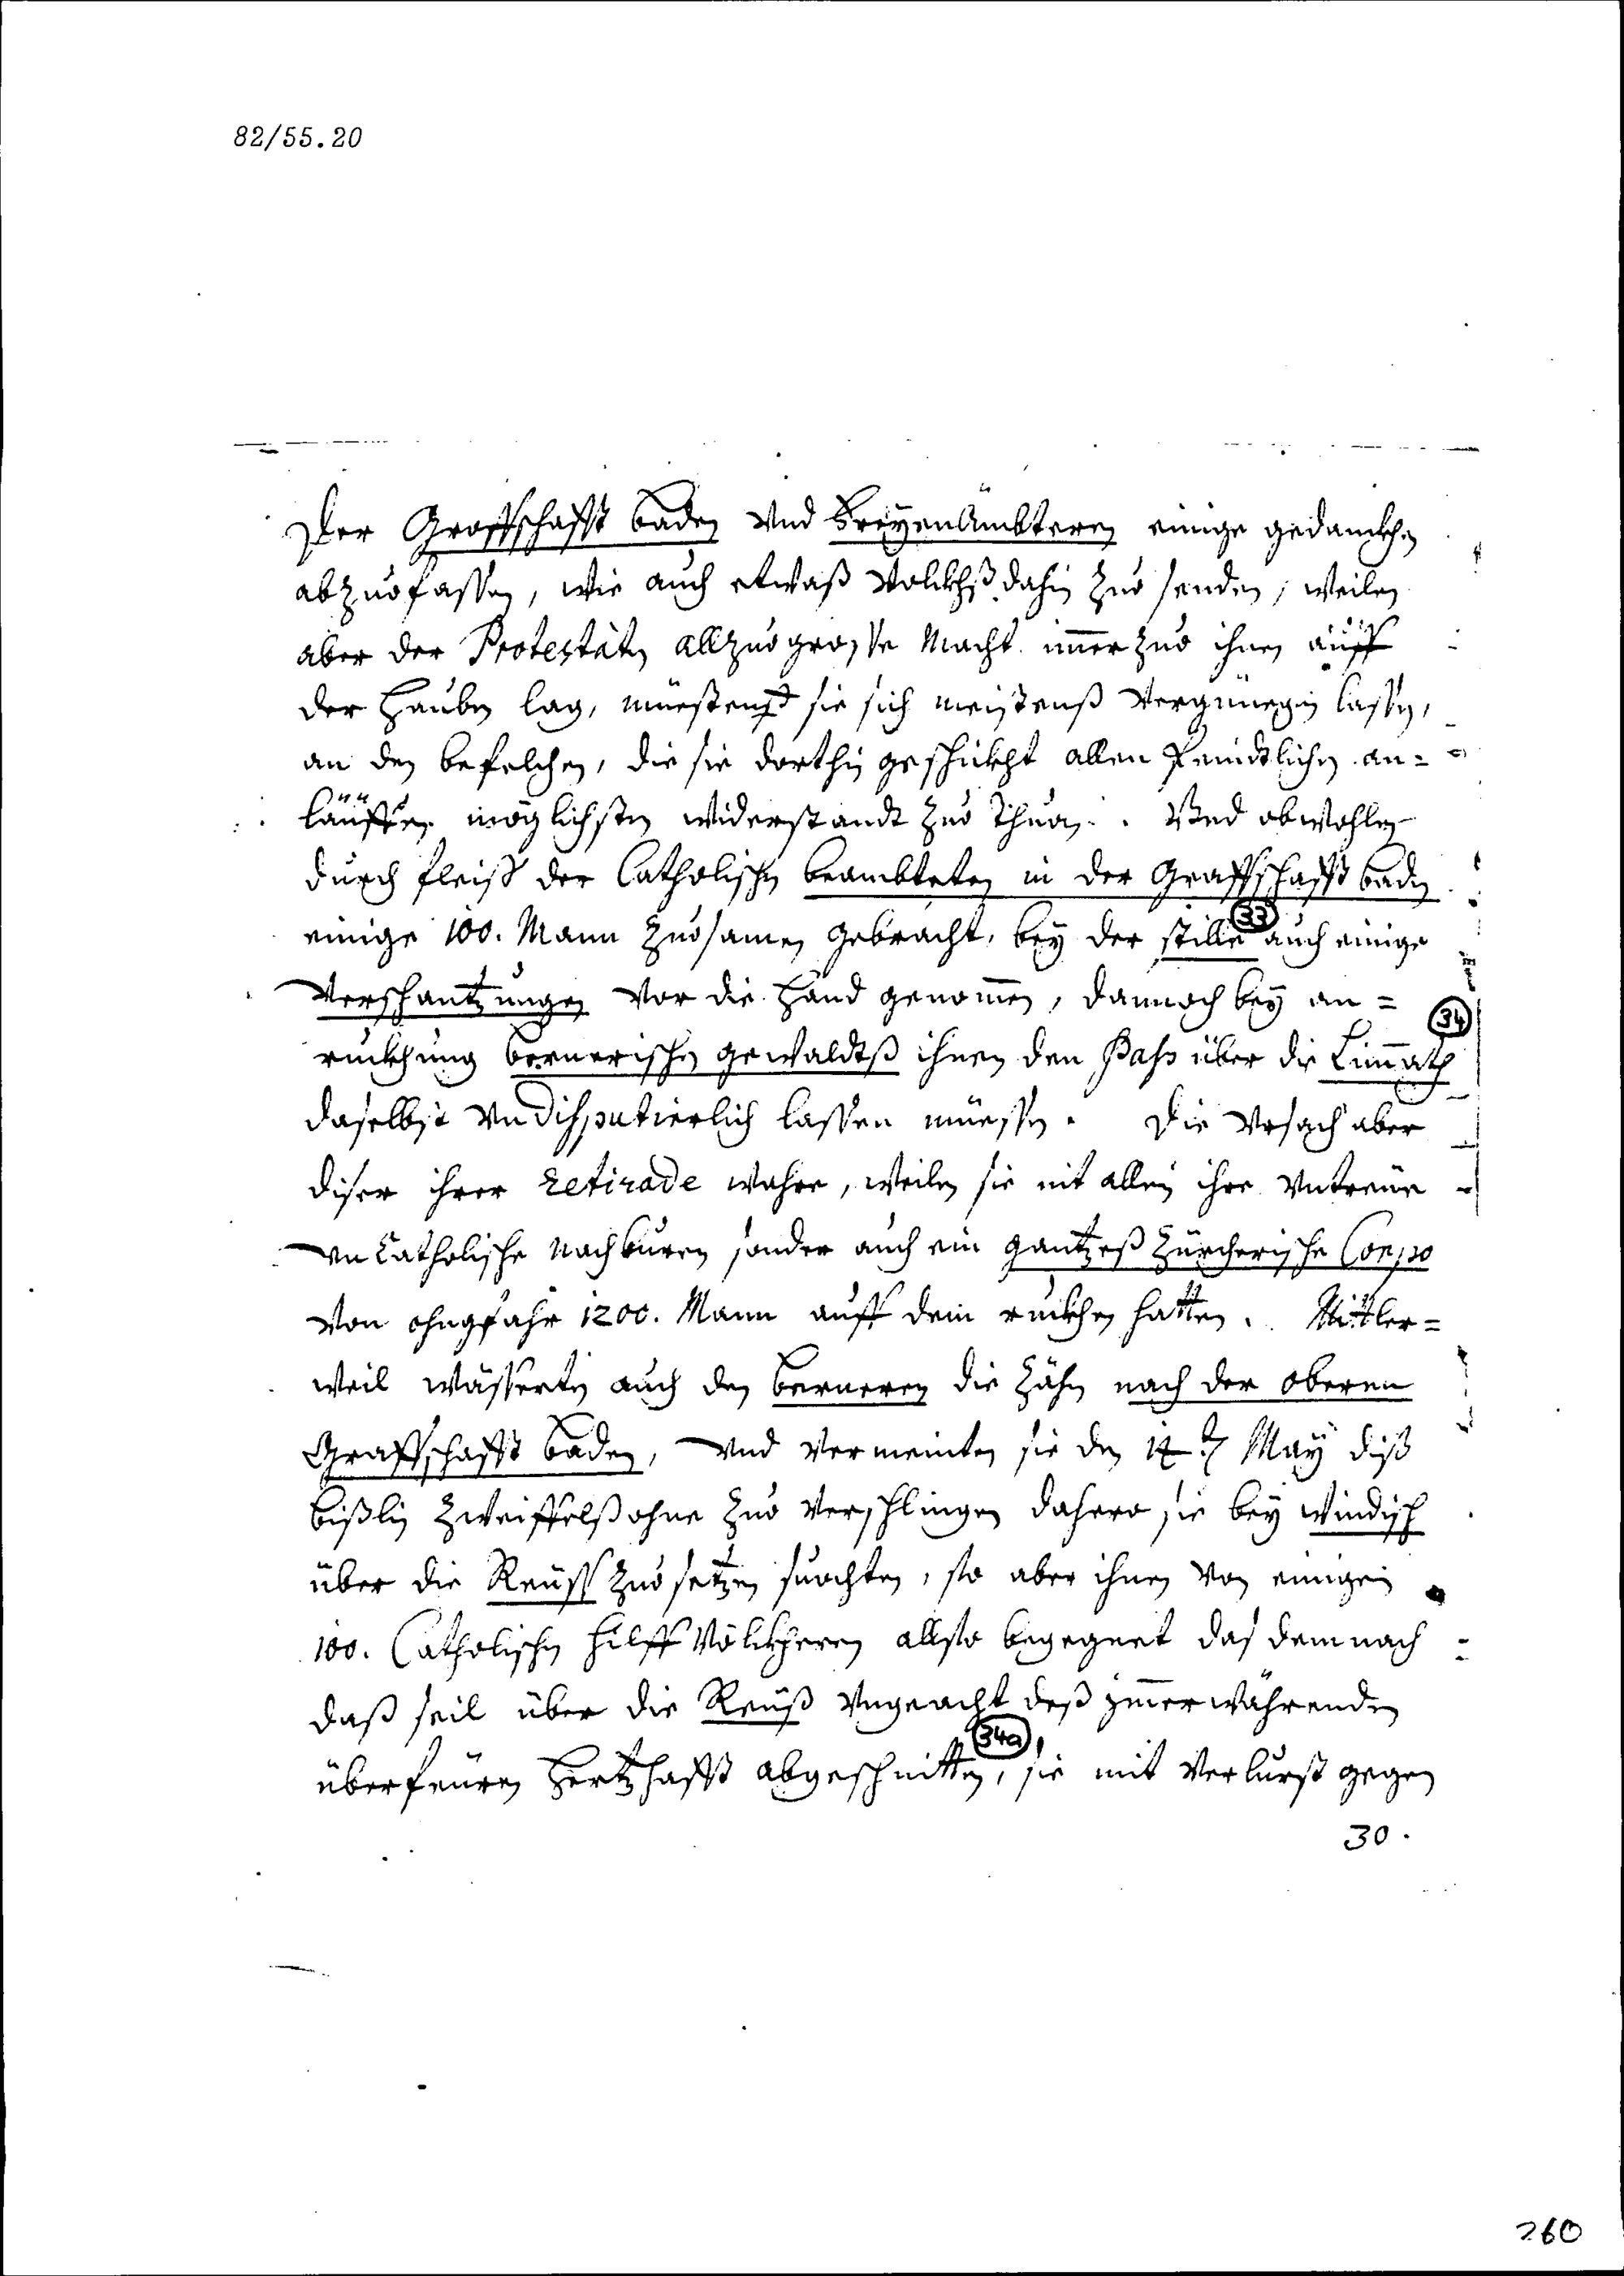 82/55.20
Der Graffschafft baden Vnd Freyen Ämbteren einige gedanckhen
abzuofassen, wie auch etwaß Volckhß dahin zuo senden, weilen
aber der Protestäten allzuo grosse Macht immerzuo ihnen auff
der Hauben lag, muestens sie sich meistenß Vergnüegen lassen,
an den befelchen, die sie dorthin geschickht allen feindtlichen an=
läüffen möglichsten widerstandt zuo Thuon. Vnd obwohlen
durch fleiss der Catholischen beambteten in der Graffschafft baden
einige 100. Mann zuosamen gebracht, bey der stille (33) auch einige
Verschantzungen Vor die Hand genommen, dannoch bey an=
(34)
ruckhung bernerischen gewaldtß ihnen den Pass über die Limmath
daselbst Vndisputierlich lassen müessen. Die Vrsach aber
diser ihrer retirade wahre, weilen sie nit allein ihre Vntreüe
Vn Catholische Nachburen sonder auch ein gantzeß Zürcherische Corpo
Von ohngfahr 1200. Mann auff dem ruckhen hatten. Mittler=
weil wässerten auch den berneren die Zähn nach der oberen
Graffschafft baden, Vnd Vermeinten sie den 14.t May diß
bißlin zweiffelß ohne zuo Verschlingen dahero sie bey windisch
über die Reüss zuo setzen suochten, so aber ihnen Von einigen
100. Catholischen hilff Völckheren allso begegnet das dem nach
daß seil über die Reüß Vngeacht deß immerwährenden
(34a)
überfeüren hertzhafft abgeschnitten, sie mit Verlurst gegen
30.
260